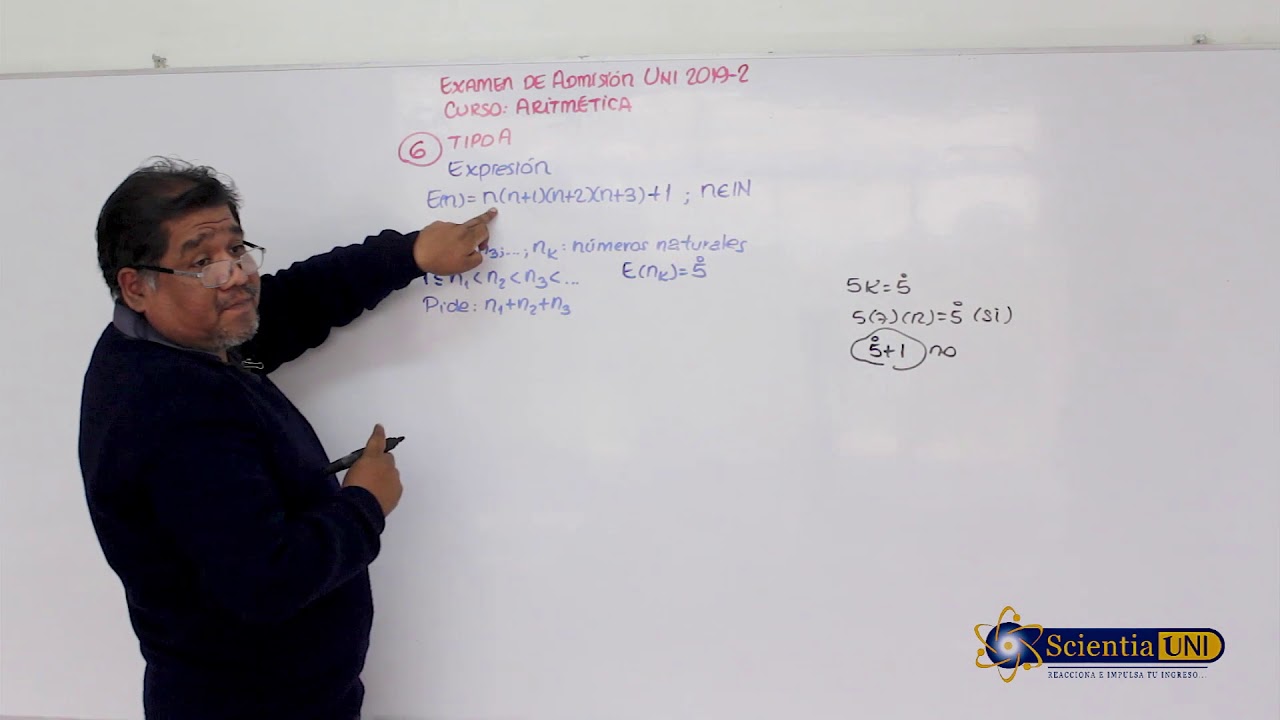 EXAMEN DE ADMISIÓN UNI 2019-2
CURSO: ARITMÉTICA
6 TIPO A
Expresión
E(n)= n(n+1)(n+2)(n+3)+1 ; n∈IN
n3;...; nK: números naturales
n1<n2<n3<... E(nK)=5̊
Pide: n1+n2+n3
5K=5̊
5(7)(n)=5̊ (Si)
5̊+1 no
Scientia UNI
REACCIONA E IMPULSA TU INGRESO...